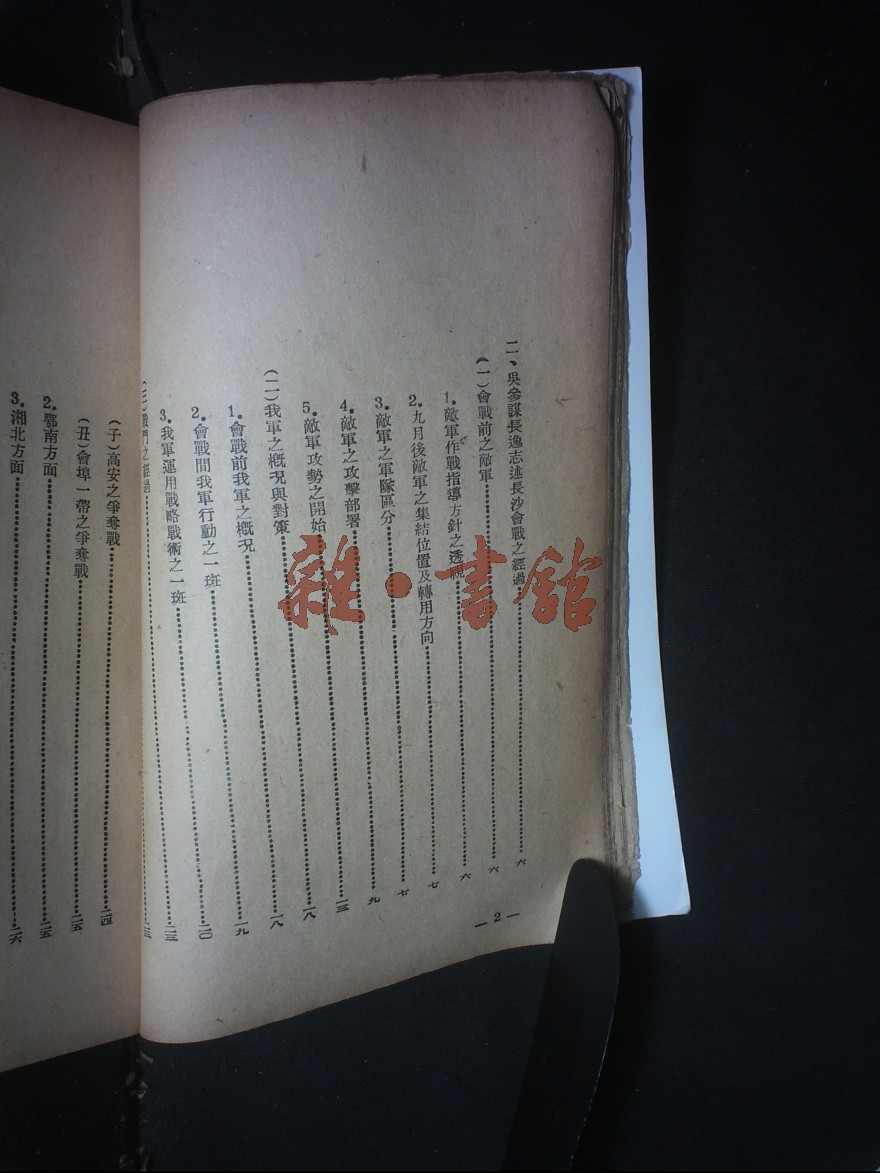 二、吳參謀長逸志述長沙會戰之經過……六
(一)會戰前之敵軍……六
1.敵軍作戰指導方針之透視……六
2.九月後敵軍之集結位置及轉用方向……七
3.敵軍之軍隊區分……七
4.敵軍之攻擊部署……九
5.敵軍攻勢之開始……一三
(二)我軍之概況與對策……一八
1.會戰前我軍之概況……一八
2.會戰間我軍行動之一斑……一九
3.我軍運用戰略戰術之一斑……二〇
(三)戰鬥之經過……二三
—2—
(子)高安之爭奪戰……二四
(丑)會埠一帶之爭奪戰……二五
2.鄂南方面……二五
3.湘北方面……二六
雜·書館